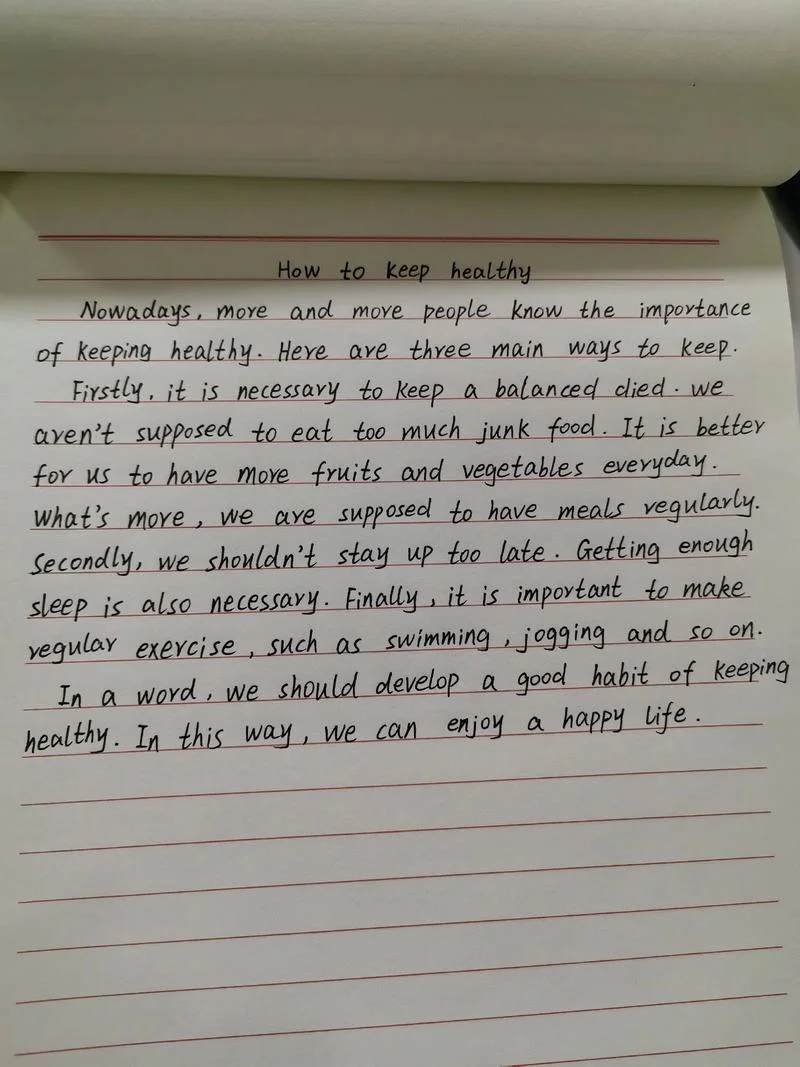 How to keep healthy
Nowadays, more and more people know the importance
of keeping healthy. Here are three main ways to keep.
Firstly, it is necessary to keep a balanced died. we
aren't supposed to eat too much junk food. It is better
for us to have more fruits and vegetables everyday.
What's more, we are supposed to have meals regularly.
Secondly, we shouldn't stay up too late. Getting enough
sleep is also necessary. Finally, it is important to make
regular exercise, such as swimming, jogging and so on.
In a word, we should develop a good habit of keeping
healthy. In this way, we can enjoy a happy life.